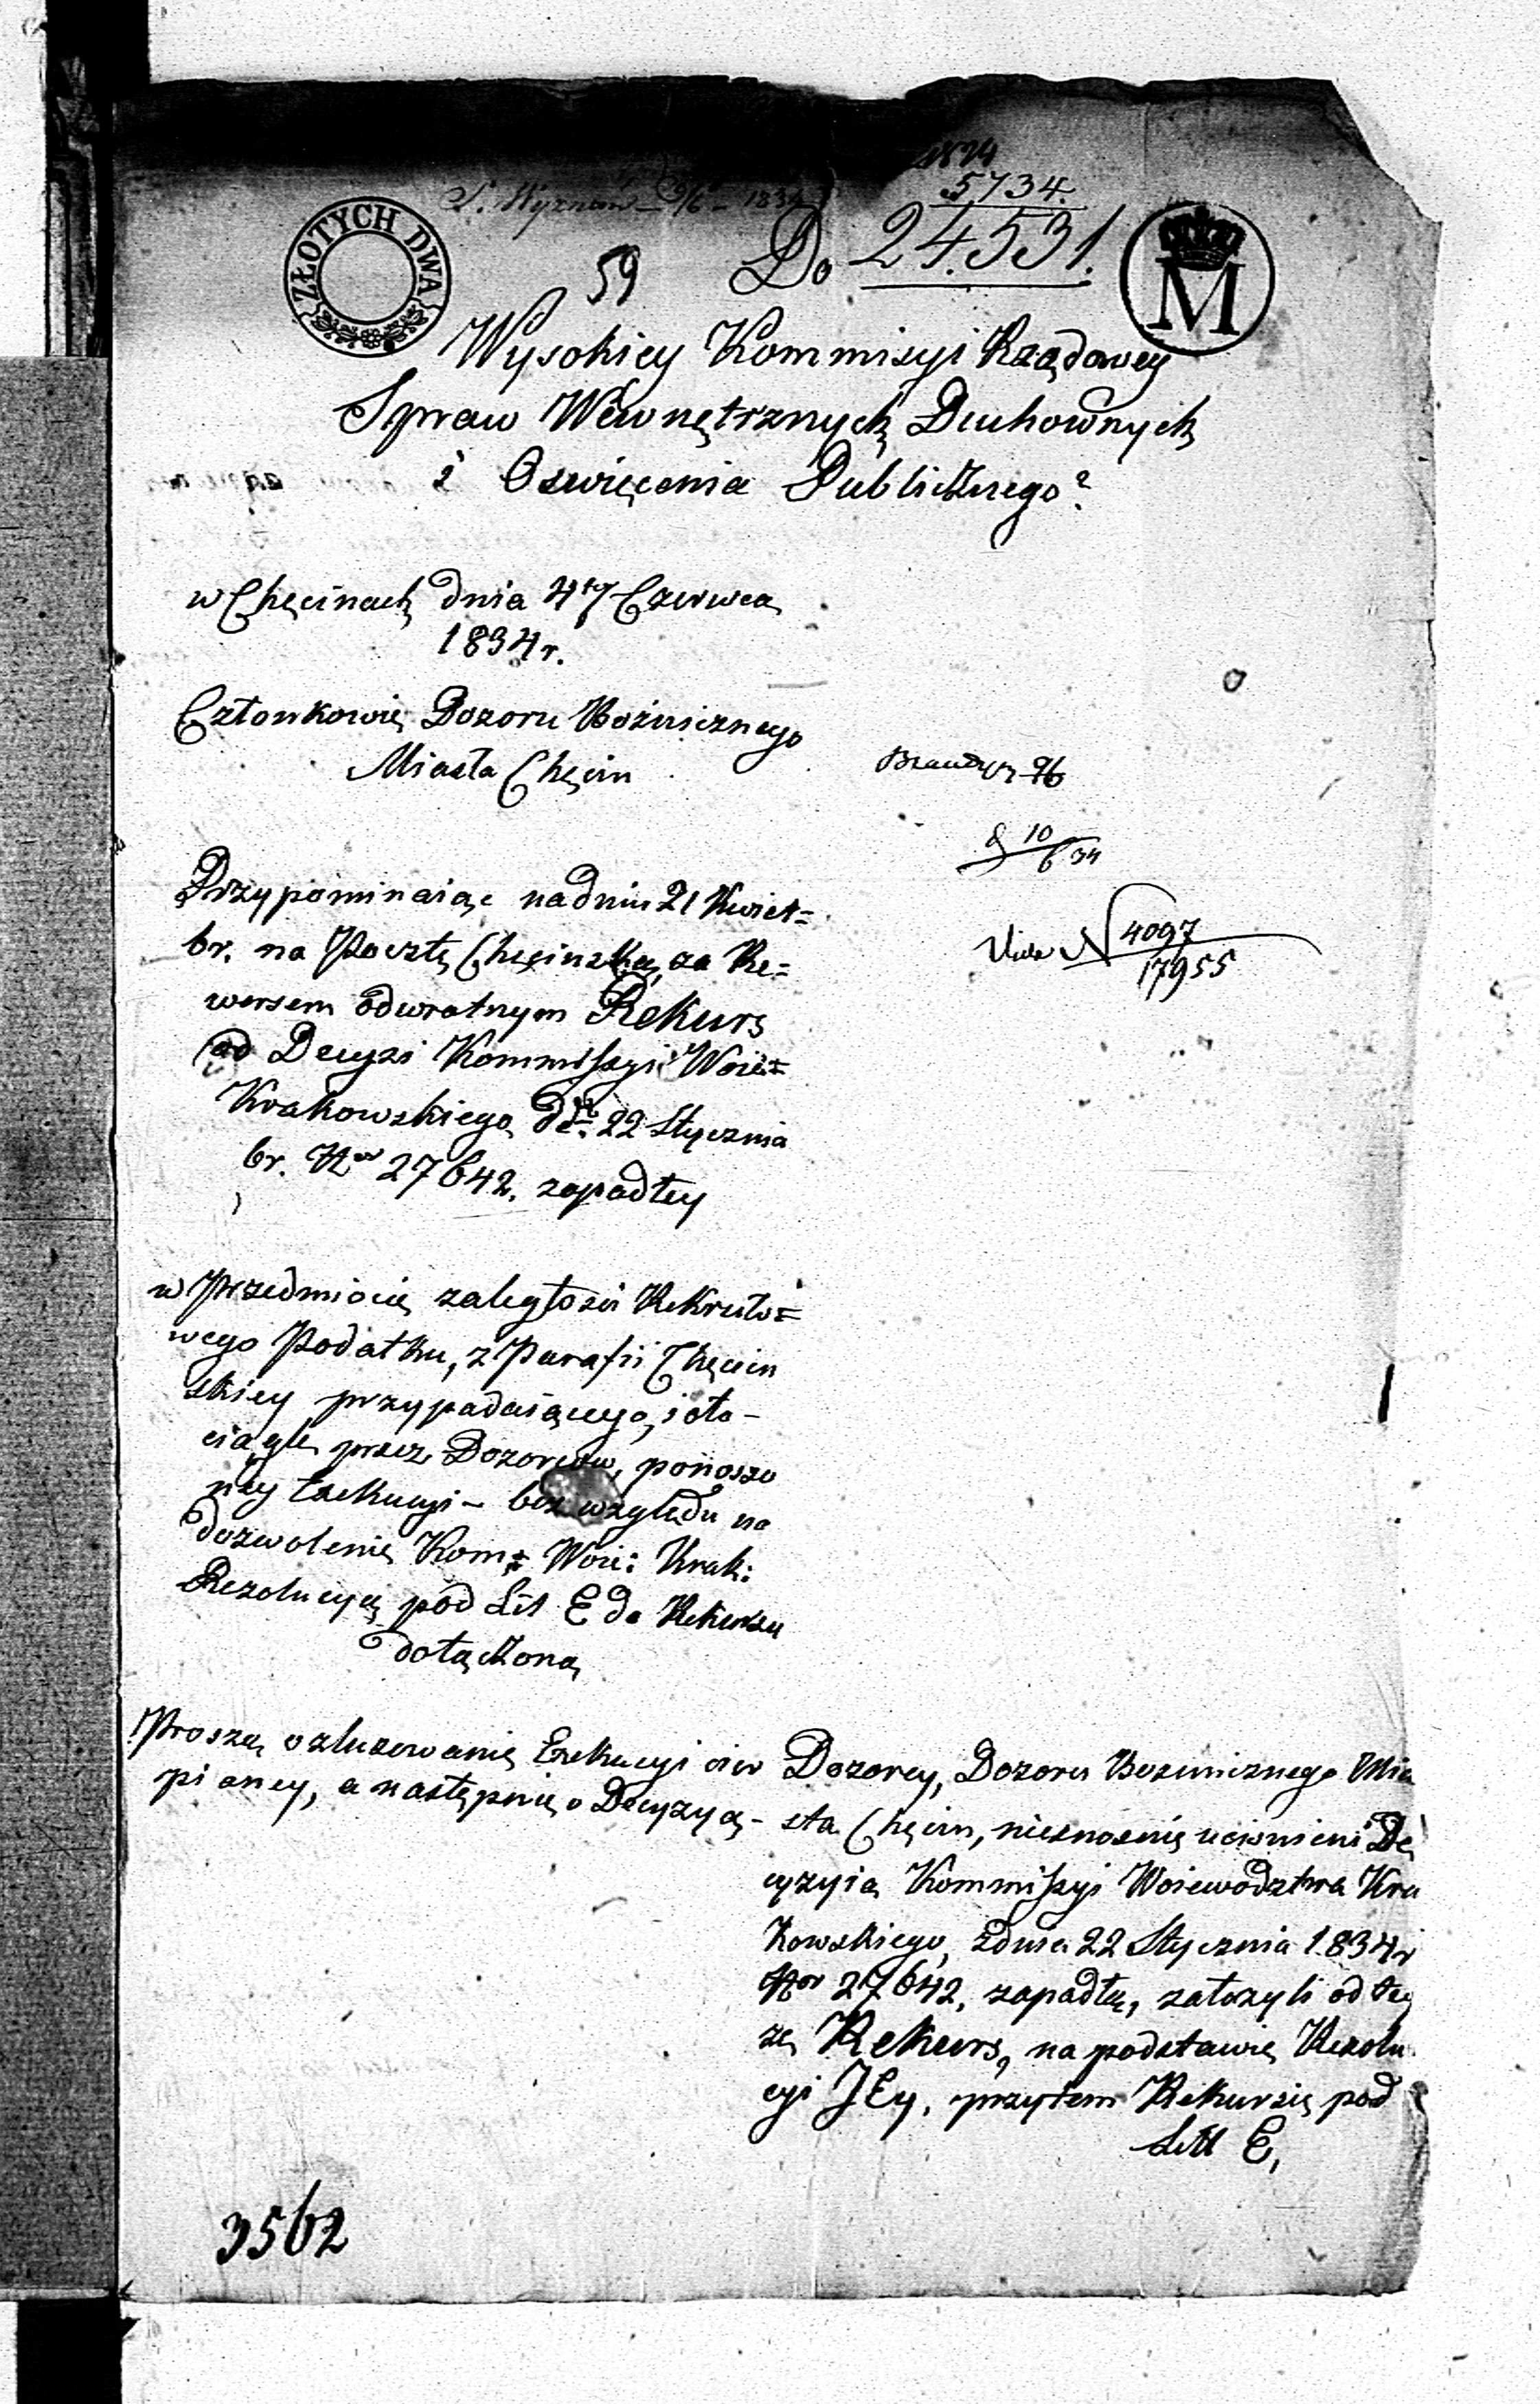 1834
5734.
S. Wyznań 9/6 1834
ZŁOTYCH DWA
59 Do 24.531.
M
Wysokiey Kommisyi Rządowey
Spraw Wewnętrznych Duchownych
i Oswięcenia Publicznego?
w Chęcinach dnia 4tej Czerwca
1834 r.
Członkowie Dozoru Bożnicznego
Miasta Chęcin
10
6 34
Vide N 4097
17955
Przypominaiąc na dniu 21 Kwiet=
br. na Pocztę Chęcinską za Re=
wersem odwrotnym Rekurs
od Decyzi Kommissyi Woie=
Krakowskiego dto 22 Stycznia
br. Nor 27642. zapadłey
w Przedmiocie zaległosci Rekruto=
wego Podatku, z Parafii Chęcin
skiey przypadaiącego, i oto-
ciągle przez Dozorców, ponoszo
ney Exekucyi - bez względu na
dozwolenie Kom: Woie: Krak:
Rezolucyą pod Lit E do Rekursu
dołączoną
Proszą o zluzowanie Exekucyi
pioney, a następnie o Decyzyą -
Dozorcy, Dozoru Boznicznego Mia
sta Chęcin, nieznosnie ucisnieni De
cyzyią Kommissyi Woiewodztwa Kra
kowskiego, z dnia 22 Stycznia 1834 r
Nor 27642, zapadłą, założyli od tey
że Rekurs, na podstawie Rezolu
cyi JEy, przytem Rekursie pod
Litt E,
3562